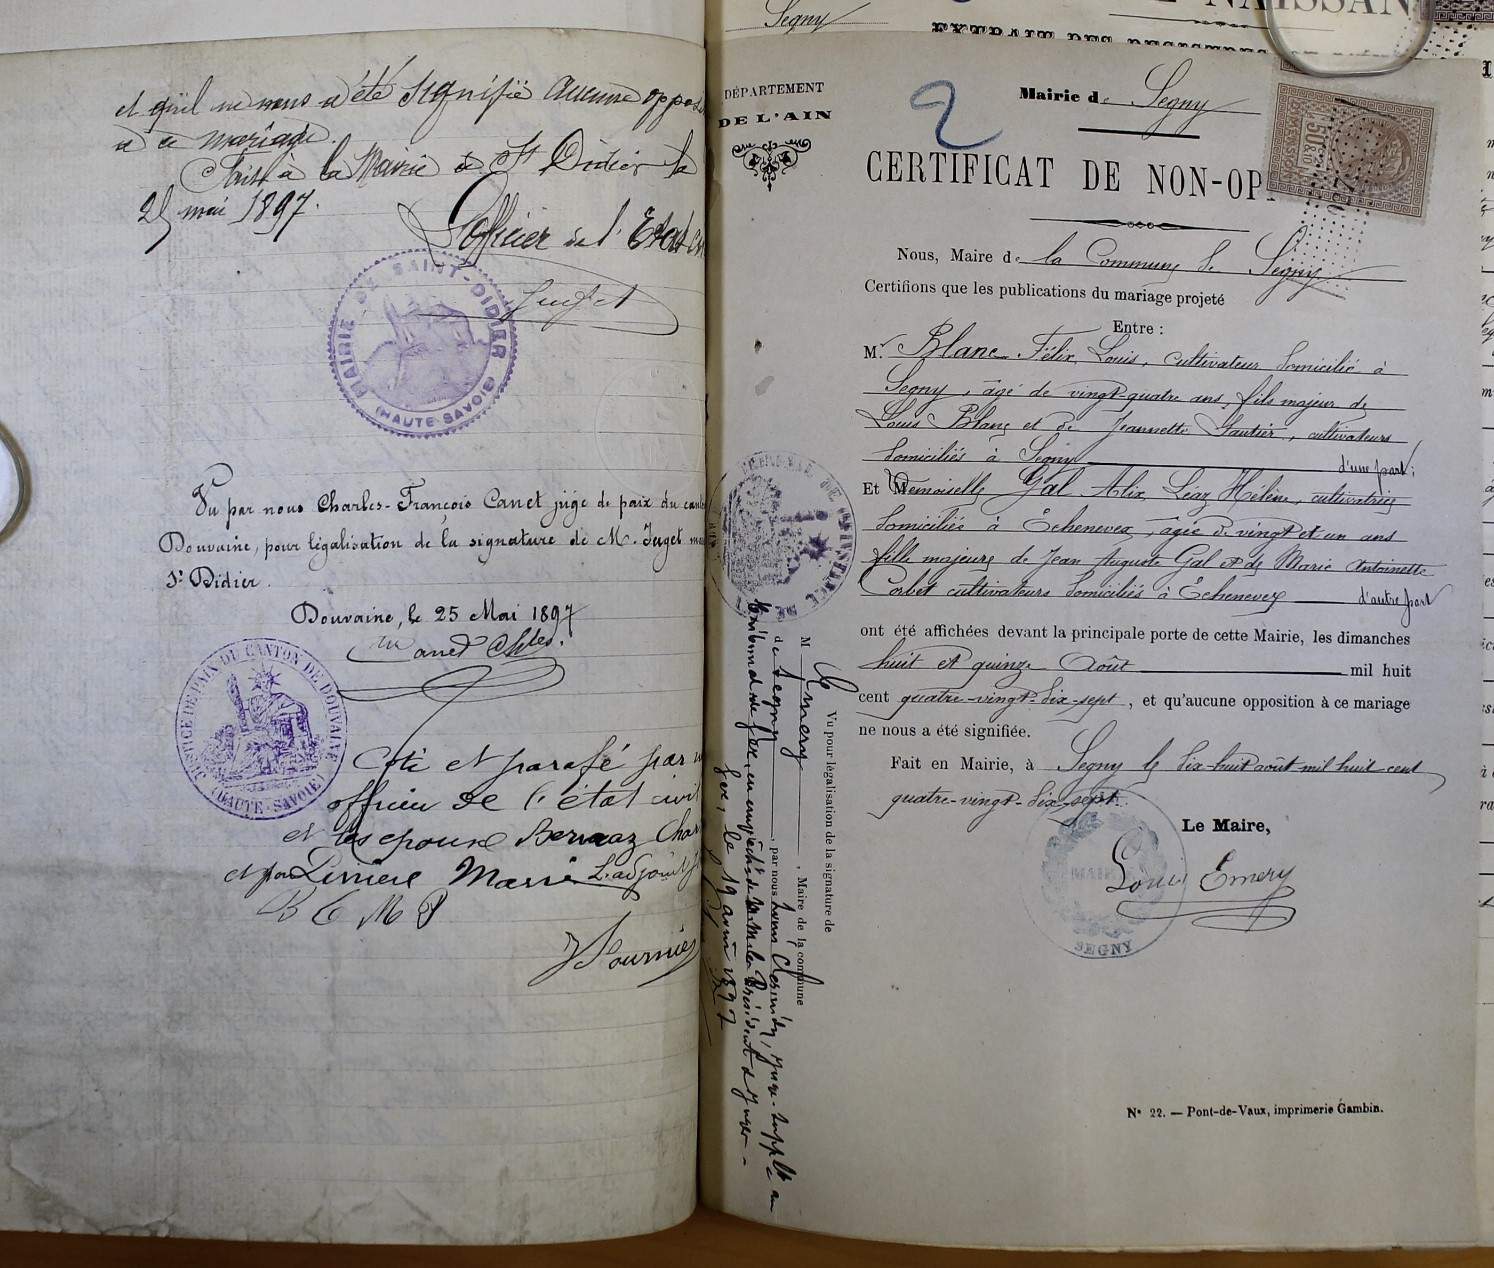 et qu'il ne nous a été signifié aucune oppos
à ce mariage.
à la Mairie de St Didier le
25 mai 1897.
L'officier de l'Etat
Juget
MAIRIE DE SAINT-DIDIER
(HAUTE-SAVOIE)
Vu par nous Charles-François Canet juge de paix du cant
Douvaine, pour légalisation de la signature de M. Juget
St Didier.
Douvaine, le 25 Mai 1897
Canet Chles.
JUSTICE DE PAIX DU CANTON DE DOUVAINE
(HAUTE-SAVOIE)
Coté et parafé par
officier de l'état civil
et les epoux Bernaz Char
et par Marie L'adjoint
B C M P
Fournier
Segny
NAISSAN
EXTRAIT DES REGISTRES
DÉPARTEMENT
DE L'AIN
2
Mairie de Segny
CERTIFICAT DE NON-OP
Nous, Maire de la Commune de Segny
Certifions que les publications du mariage projeté
Entre :
M. Blanc Félix Louis, cultivateur domicilié à
Segny, âgé de vingt-quatre ans, fils majeur de
Louis Blanc et de Jeannette Gautier, cultivateurs
domiciliés à Segny d'une part;
Et Demoiselle Gal Alix Léa Hélène, cultivatrice
domiciliée à Échenevex, âgée de vingt et un ans
fille majeure de Jean Auguste Gal et de Marie Antoinette
Corbet cultivateurs domiciliés à Échenevex d'autre part
ont été affichées devant la principale porte de cette Mairie, les dimanches
huit et quinze Août mil huit
cent quatre-vingt-dix-sept, et qu'aucune opposition à ce mariage
ne nous a été signifiée.
Fait en Mairie, à Segny le dix-huit août mil huit cent
quatre-vingt-dix-sept.
Le Maire,
Louis Emery
MAIRIE
SEGNY
Vu pour légalisation de la signature de
M Emery, Maire de la commune
de Segny, par nous Louis juge-suppléant au
tribunal de Gex, en empècht de M.M. les Président & Juges -
Gex, le 19 août 1897
N° 22. — Pont-de-Vaux, imprimerie Gambin.